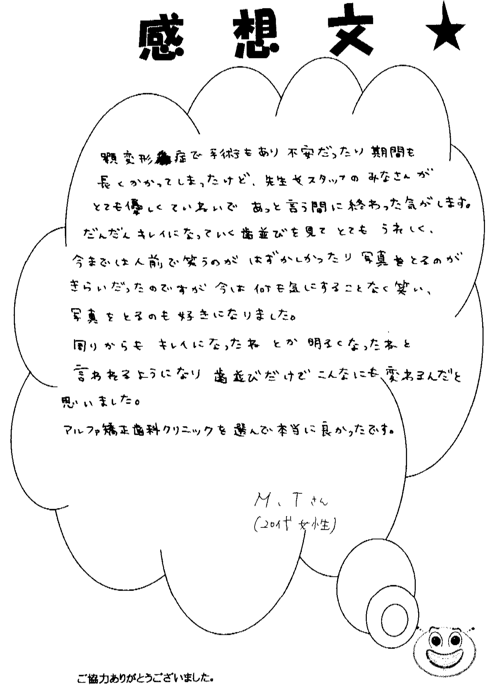 感想文★
顎変形症で手術もあり 不安だったり 期間も
長くかかってしまったけど、先生やスタッフの みなさんが
とても優しくていねいで あっと言う間に終わった気がします。
だんだん キレイになっていく歯並びを見て とても うれしく、
今までは人前で笑うのが はずかしかったり 写真をとるのが
きらいだったのですが 今は 何も気にすることなく笑い、
写真をとるのも好きになりました。
周りからも キレイになったね とか 明るくなったねと
言われるようになり 歯並びだけで こんなにも変わるんだと
思いました。
アルファ矯正歯科クリニックを選んで本当に良かったです。
M、Tさん
(20代 女性)
ご協力ありがとうございました。